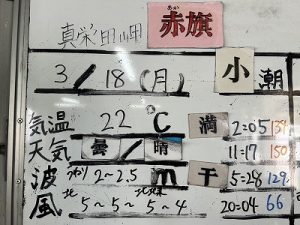 真栄田岬 赤旗
あか はた
3/18(月) 小潮
気温 22℃ 満 2:05 139
天気 曇/晴 11:17 150
波 うねり2~2.5m 干 5:28 129
風 北5~5~ 北東5~4 20:04 66